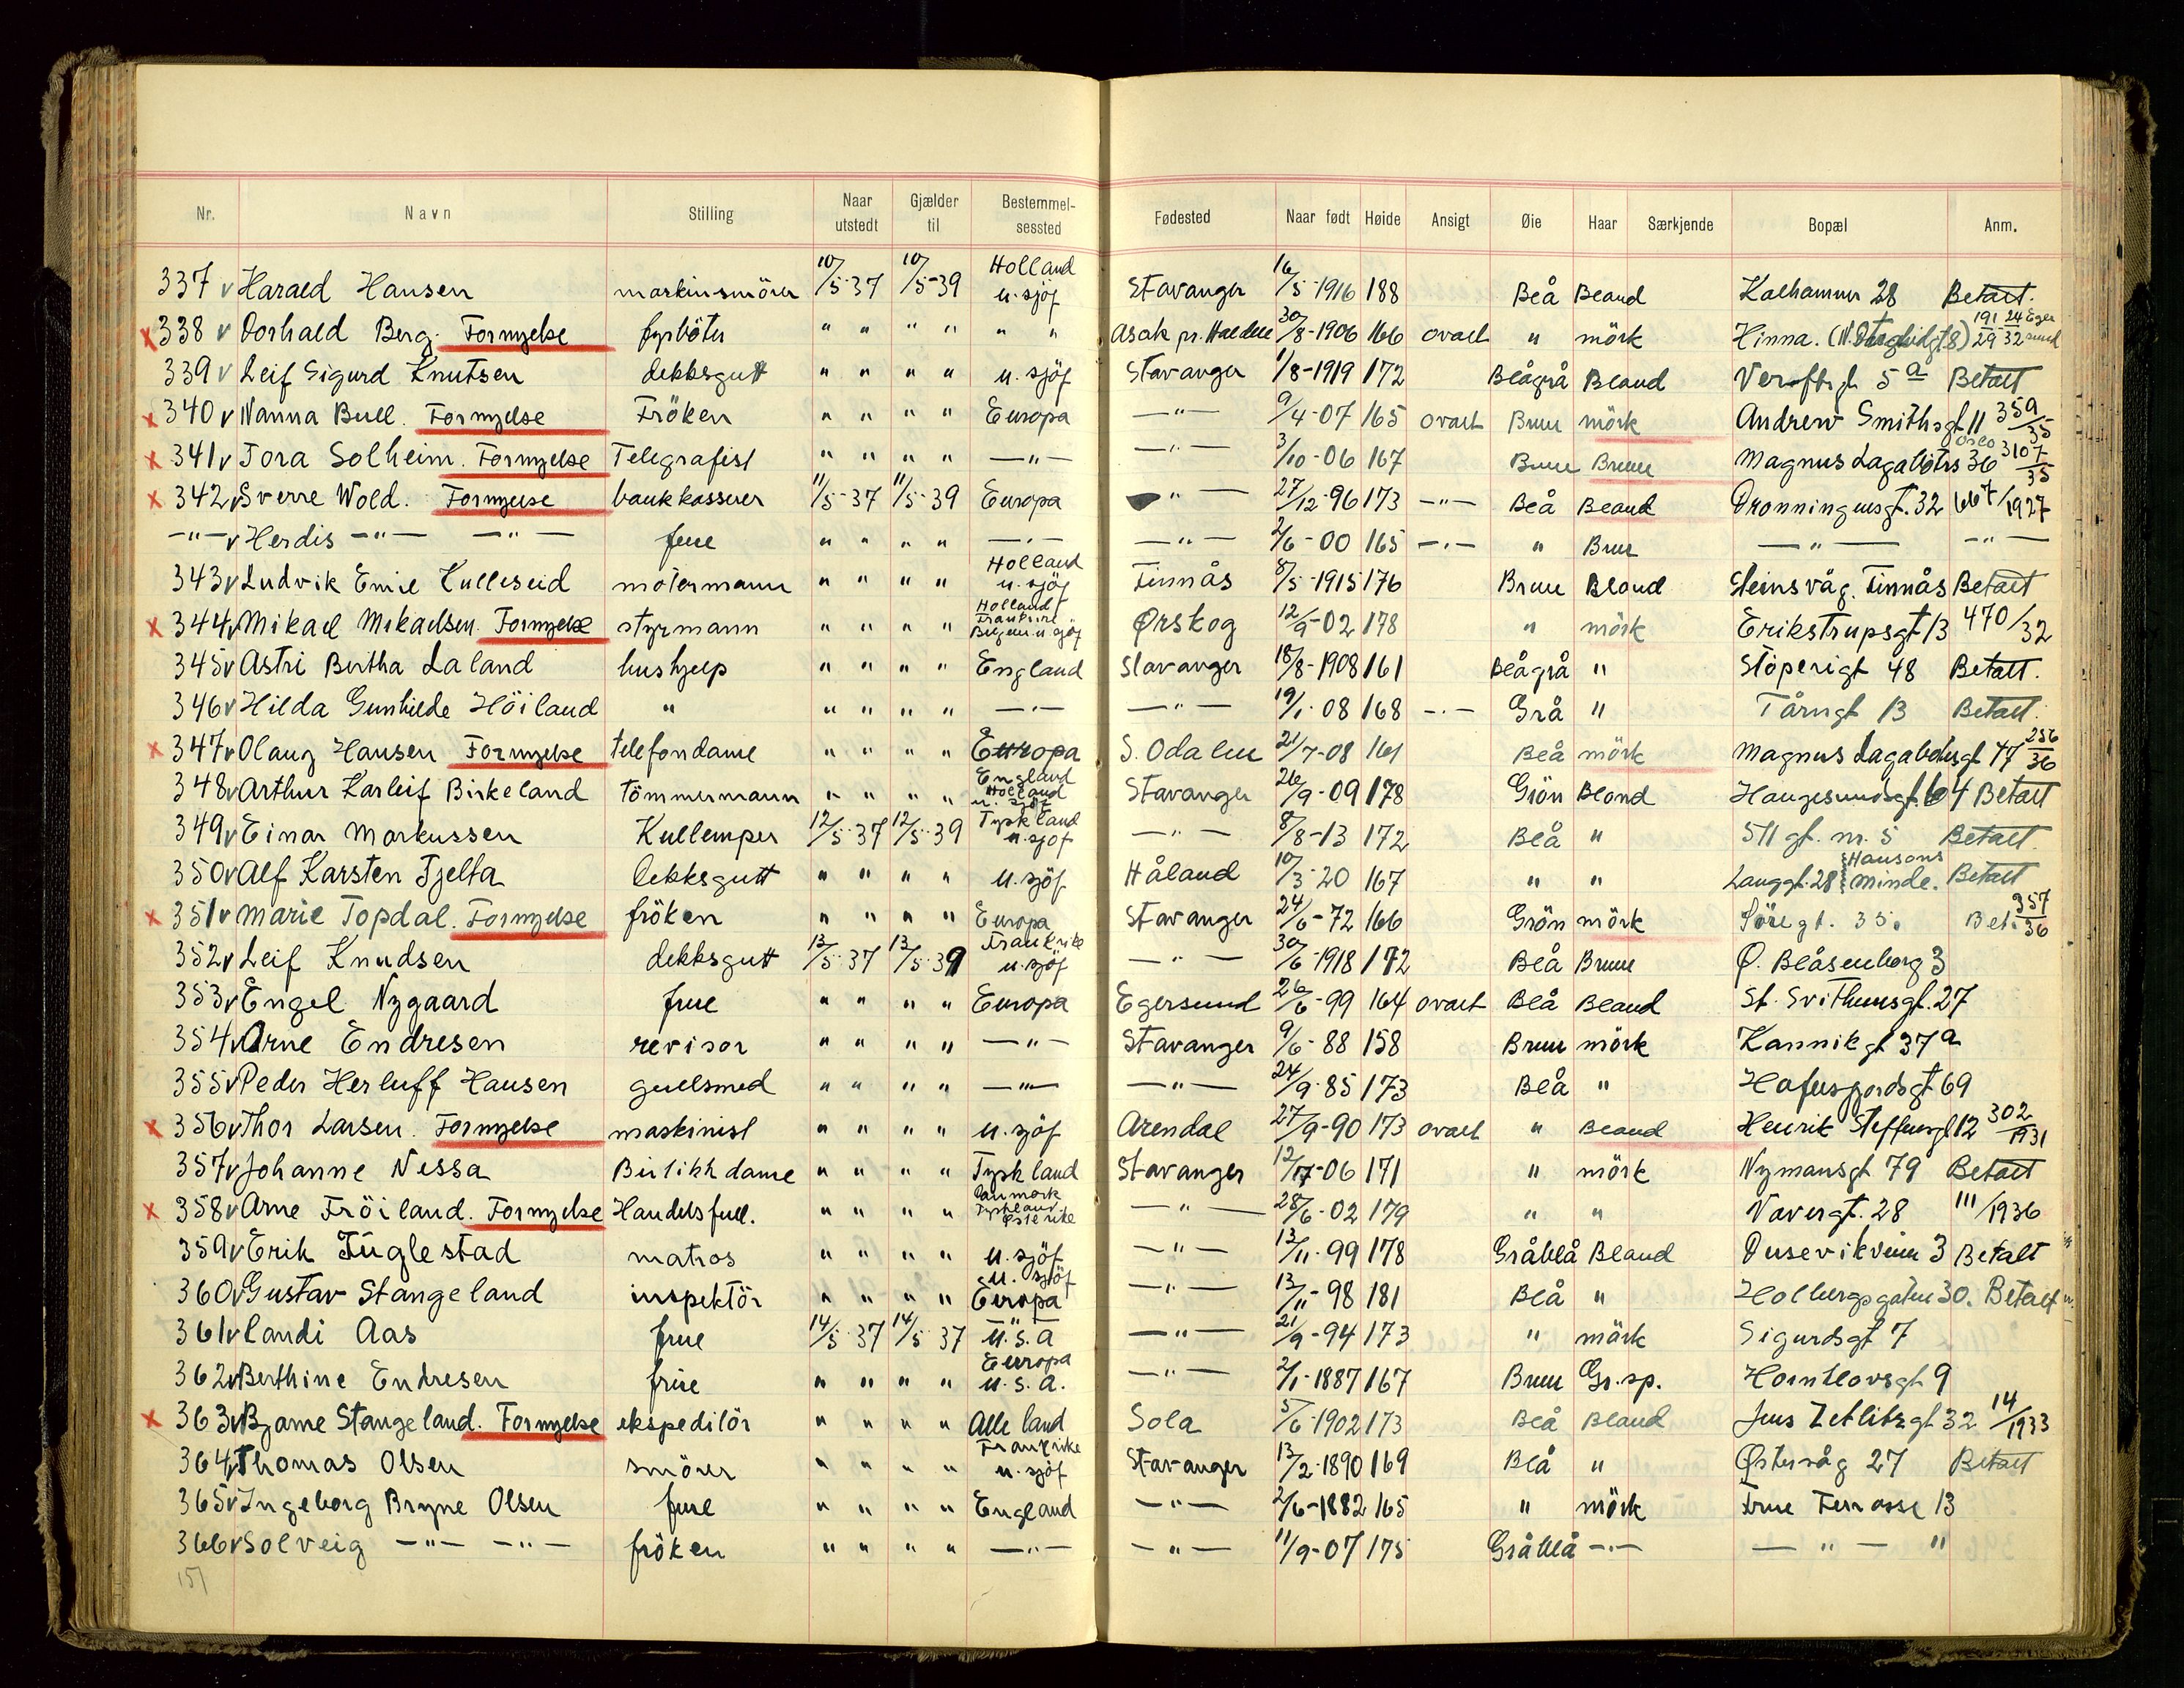 Nr. Navn Stilling Naar utstedt Gjælder til Bestemmel-sessted Fødested Naar født Høide Ansigt Øie Haar Særkjende Bopæl Anm.
337 v Harald Hansen maskinsmörer 10/5-37 10/5-39 Holland u. sjöf Stavanger 16/5-1916 188 Blå Blond Kalhammer 28 Betalt.
x 338 v Torhald Berg. Fornyelse fyrböter " " " " " " Asak pr. Halden 30/8-1906 166 ovalt " mörk Hinna. 191/29 24/32 Egersund
339 v Leif Sigurd Knutsen dekksgutt " " " " u. sjöf Stavanger 1/8-1919 172 Blågrå Blond Verftsgt 5a Betalt
x 340 v Nanna Bull. Fornyelse Fröken " " " " Europa —"— 9/4-07 165 ovalt Brun mörk Andrew Smithsgt 11 359/35
x 341 v Tora Solheim. Fornyelse Telegrafist " " " " —"— —"— 3/10-06 167 Brune Brun Magnus Lagabötrs 36 Oslo 3107/35
x 342 v Sverre Wold. Fornyelse bankkasserer 11/5-37 11/5-39 Europa —"— 27/12-96 173 —"— Blå Blond Dronningensgt. 32 667/1927
—"— v Herdis —"— —"— frue " " " " —"— —"— 2/6-00 165 —"— " Brun —"— —"—
343 v Ludvik Emil Kulleseid motormann " " " " Holland u. sjöf Finnås 8/5-1915 176 Brun Blond Steinsvåg. Finnås Betalt
x 344 v Mikael Mikaelsen. Fornyelse styrmann " " " " Holland Frankrike Belgien u. sjöf Ørskog 12/9-02 178 " mörk Erikstrupsgt 13 470/32
345 v Astri Bertha Laland hushjelp " " " " England Stavanger 18/8-1908 161 Blågrå " Stöperigt 48 Betalt.
346 v Hilda Gunhilde Höiland " " " " " —"— —"— 19/1-08 168 —"— Grå " Tårngt 13 Betalt.
x 347 v Olaug Hansen Fornyelse telefondame " " " " Europa S. Odalen 21/7-08 161 Blå mörk Magnus Lagabötersgt 47 256/36
348 v Arthur Karleif Birkeland Tömmermann " " " " England Holland u. sjöf Stavanger 26/9-09 178 Grön Blond Haugesundsgt. 64 Betalt
349 v Einar Markussen Kullemper 12/5-37 12/5-39 Tyskland u. sjöf —"— 8/8-13 172 Blå " 511 gt. nr. 5 Betalt.
350 v Alf Karsten Tjelta dekksgutt " " " " u. sjöf Håland 10/3-20 167 " " Langgt. 28 Hansons Minde. Betalt
x 351 v Marie Topdal. Fornyelse fröken " " " " Europa Stavanger 24/6-72 166 Grön mörk Söregt. 35. Bet. 357/36
352 v Leif Knudsen dekksgutt 13/5-37 13/5-39 Frankrike u. sjöf —"— 30/6-1918 172 Blå Brun Ø. Blåsenborg 3
353 v Engel Nygaard frue " " " " Europa Egersund 26/6-99 164 ovalt Blå Blond St. Svithunsgt. 27
354 v Arne Endresen revisor " " " " —"— Stavanger 9/6-88 158 Brun mörk Kannikgt 37a
355 v Peder Herluff Hansen gullsmed " " " " —"— —"— 24/9-85 173 Blå " Hafrsfjordsgt 69
x 356 v Thor Larsen. Fornyelse maskinist " " " " u. sjöf Arendal 27/9-90 173 ovalt " Blond Henrik Steffensgt 12 302/1931
357 v Johanne Nessa Butikkdame " " " " Tyskland Stavanger 12/17-06 171 " mörk Nymansgt 79 Betalt
x 358 v Arne Fröiland. Fornyelse Handelsfull. " " " " Danmark Tyskland Österike —"— 28/6-02 179 " " Navergt. 28 111/1936
359 v Erik Fuglestad matros " " " " u. sjöf —"— 13/11-99 178 Gråblå Blond Dusevikveien 3 Betalt
360 v Gustav Stangeland inspektör " " " " u. sjöf Europa —"— 13/11-98 181 Blå " Holbergsgaten 30. Betalt
361 v Randi Aas frue 14/5-37 14/5 37 U.S.A —"— 21/9-94 173 " mörk Sigurdsgt 7
362 v Berthine Endresen frue " " " " Europa U.S.A. —"— 2/1-1887 167 Brun Gr.sp. Hornklovsgt 9
x 363 v Bjarne Stangeland. Fornyelse ekspeditör " " " " Alle land Sola 5/6-1902 173 Blå Blond Jens Zetlitzgt 32 14/1933
364 v Thomas Olsen smörer " " " " Frankrike u. sjöf Stavanger 13/2-1890 169 Blå " Östervåg 27 Betalt
365 v Ingeborg Bryne Olsen frue " " " " England —"— 2/6-1882 165 " mörk Frue Terrasse 13
366 v Solveig —"— —"— fröken " " " " —"— —"— 11/9-07 175 Gråblå —"— —"— "
151